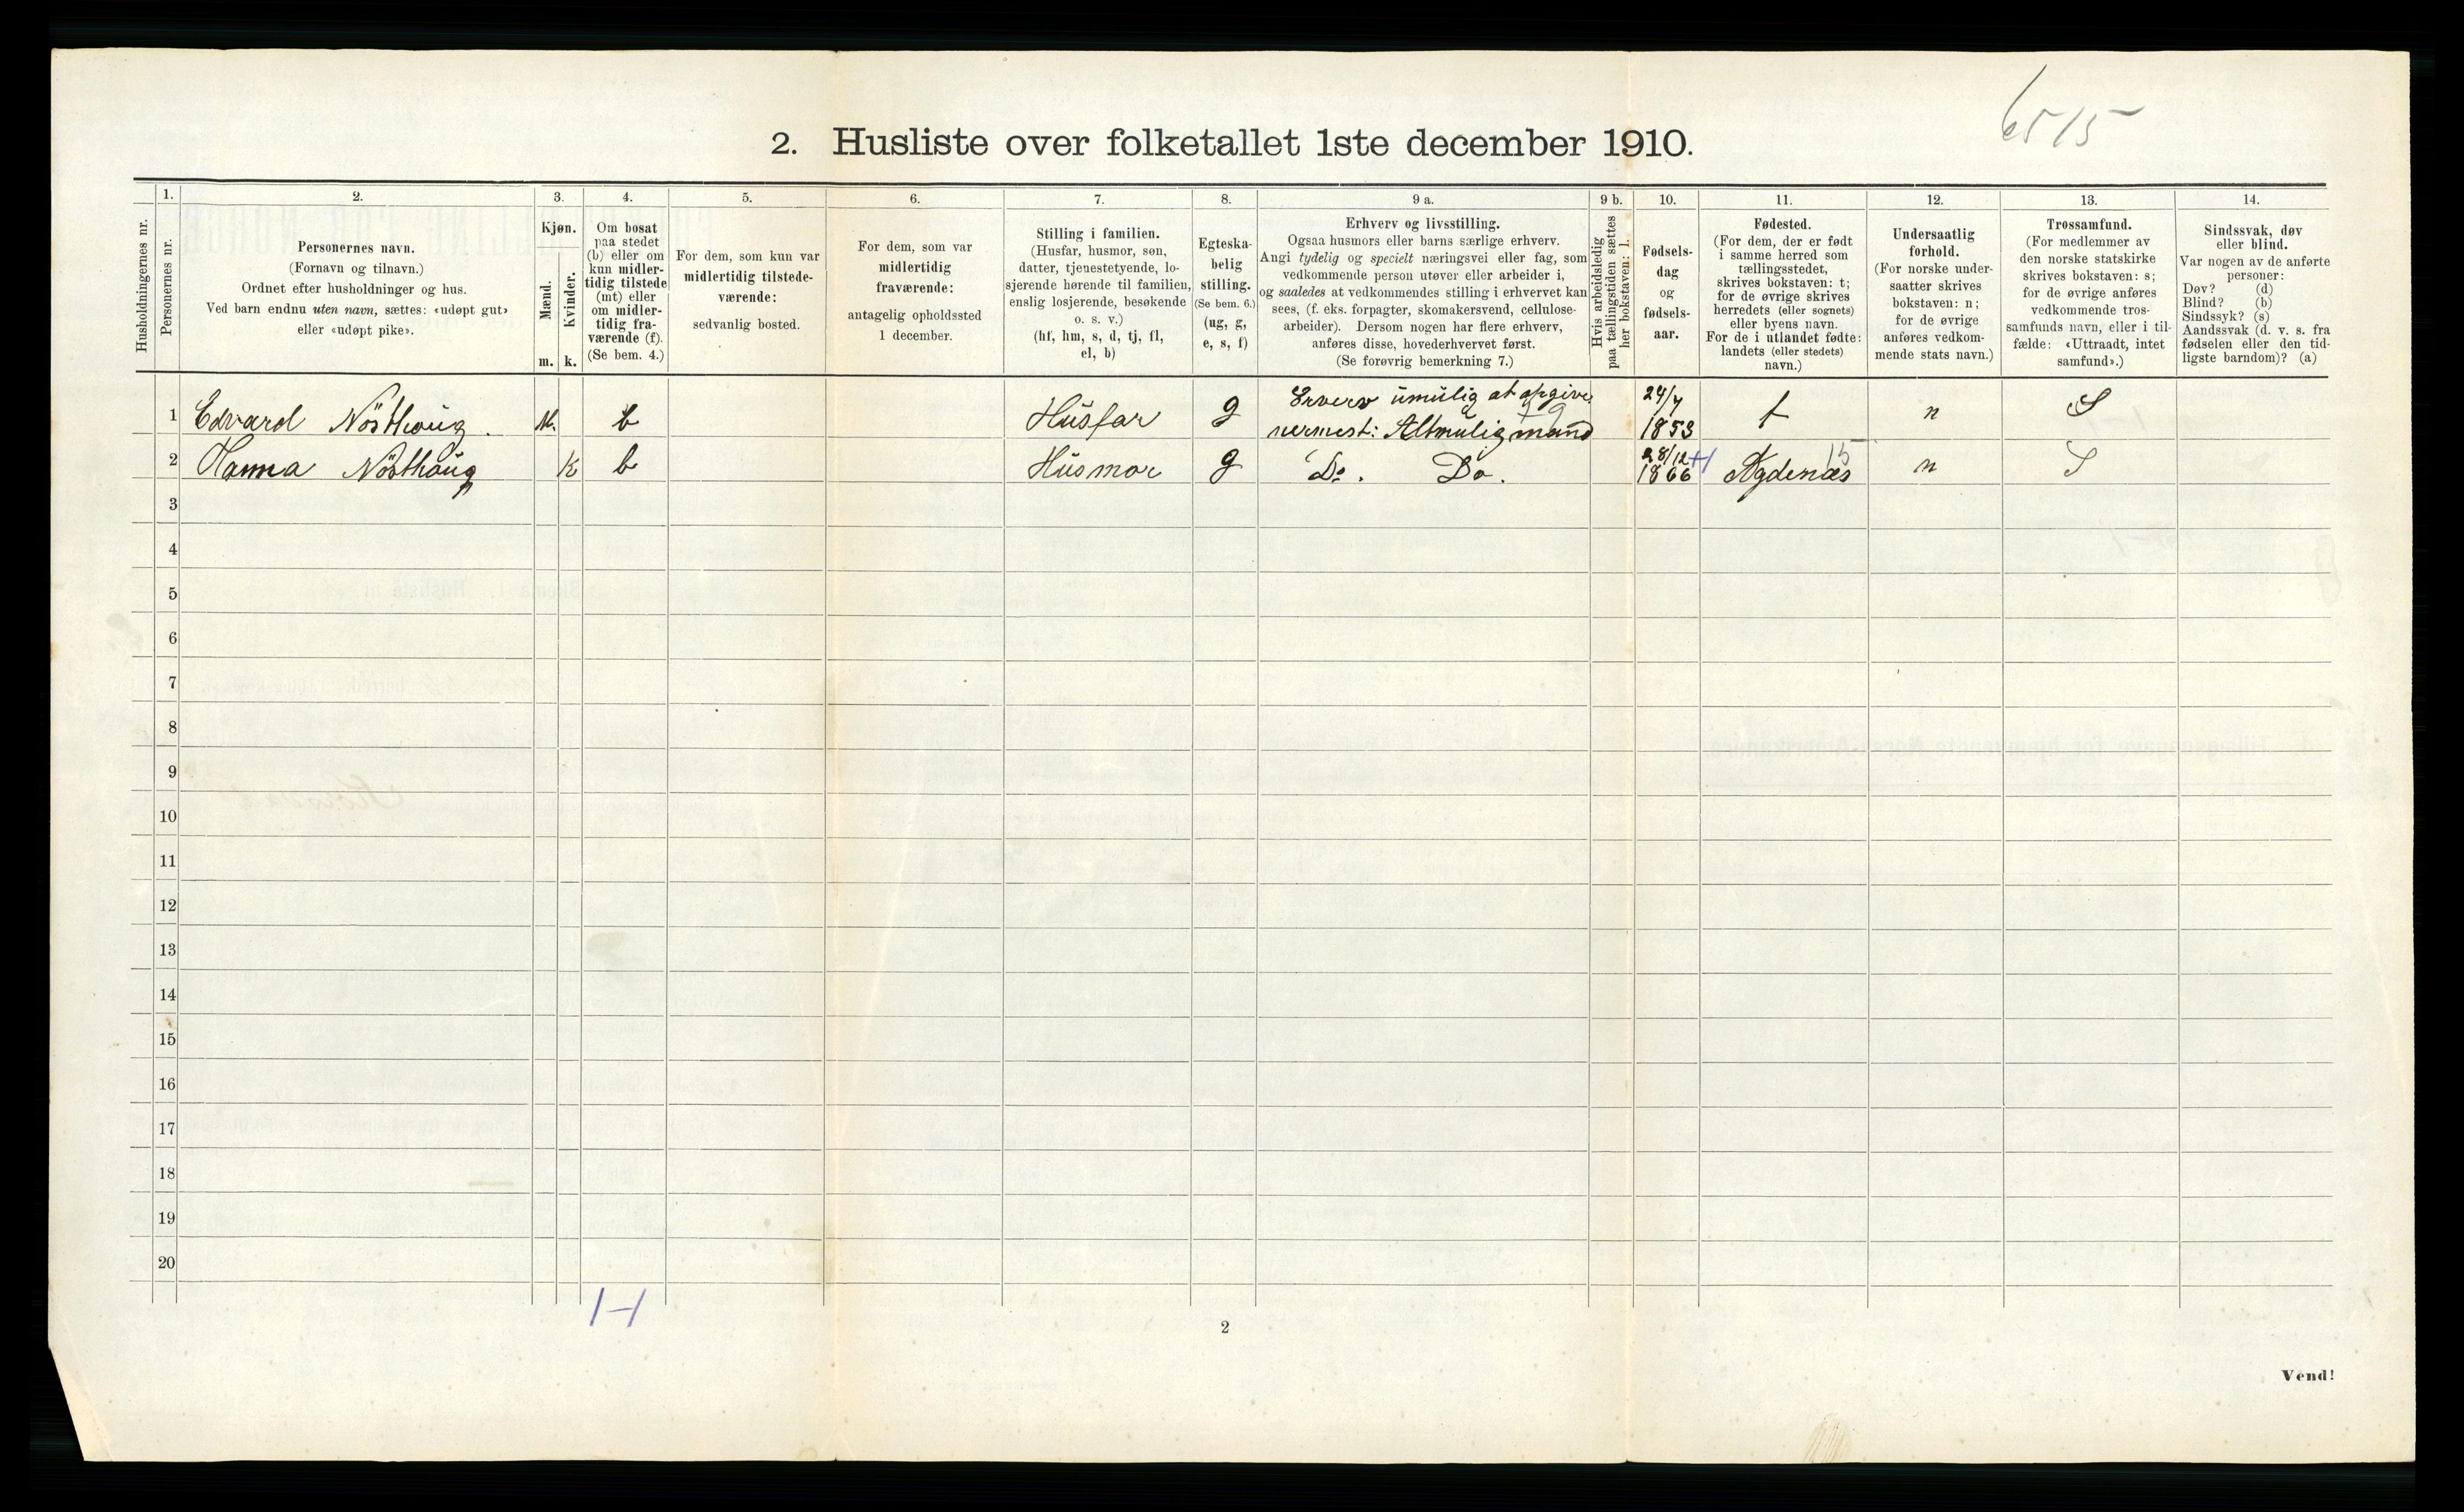 6515
2. Husliste over folketallet 1ste december 1910.
Husholdningernes nr.
1.
Personernes nr.
2.
Personernes navn.
(Fornavn og tilnavn.)
Ordnet efter husholdninger og hus.
Ved barn endnu uten navn, sættes: «udøpt gut»
eller «udøpt pike».
3.
Kjøn.
Mænd.
m.
Kvinder.
k.
4.
Om bosat
paa stedet
(b) eller om
kun midler-
tidig tilstede
(mt) eller
om midler-
tidig fra-
værende (f).
(Se bem. 4.)
5.
For dem, som kun var
midlertidig tilstede-
værende:
sedvanlig bosted.
6.
For dem, som var
midlertidig
fraværende:
antagelig opholdssted
1 december.
7.
Stilling i familien.
(Husfar, husmor, søn,
datter, tjenestetyende, lo-
sjerende hørende til familien,
enslig losjerende, besøkende
o. s. v.)
(hf, hm, s, d, tj, fl,
el, b)
8.
Egteska-
belig
stilling.
(Se bem. 6.)
(ug, g,
e, s, f)
9 a.
Erhverv og livsstilling.
Ogsaa husmors eller barns særlige erhverv.
Angi tydelig og specielt næringsvei eller fag, som
vedkommende person utøver eller arbeider i,
og saaledes at vedkommendes stilling i erhvervet kan
sees, (f. eks. forpagter, skomakersvend, cellulose-
arbeider). Dersom nogen har flere erhverv,
anføres disse, hovederhvervet først.
(Se forøvrig bemerkning 7.)
9 b.
Hvis arbeidsledig
paa tællingstiden sættes
her bokstaven: l.
10.
Fødsels-
dag
og
fødsels-
aar.
11.
Fødested.
(For dem, der er født
i samme herred som
tællingsstedet,
skrives bokstaven: t;
for de øvrige skrives
herredets (eller sognets)
eller byens navn.
For de i utlandet fødte:
landets (eller stedets)
navn.)
12.
Undersaatlig
forhold.
(For norske under-
saatter skrives
bokstaven: n;
for de øvrige
anføres vedkom-
mende stats navn.)
13.
Trossamfund.
(For medlemmer av
den norske statskirke
skrives bokstaven: s;
for de øvrige anføres
vedkommende tros-
samfunds navn, eller i til-
fælde: «Uttraadt, intet
samfund».)
14.
Sindssvak, døv
eller blind.
Var nogen av de anførte
personer:
Døv? (d)
Blind? (b)
Sindssyk? (s)
Aandssvak (d. v. s. fra
fødselen eller den tid-
ligste barndom)? (a)
1 Edvard Nösthoug. M. b Husfar g Erverv umulig at opgive. nermest: Altmuligmand 24/7 1853 t n S
2 Hanna Nösthoug K b Husmor g Do. Do. 28/12 1866 Agdenæs 15 n S
3
4
5
6
7
8
9
10
11
12
13
14
15
16
17
18
19
20
2
Vend!